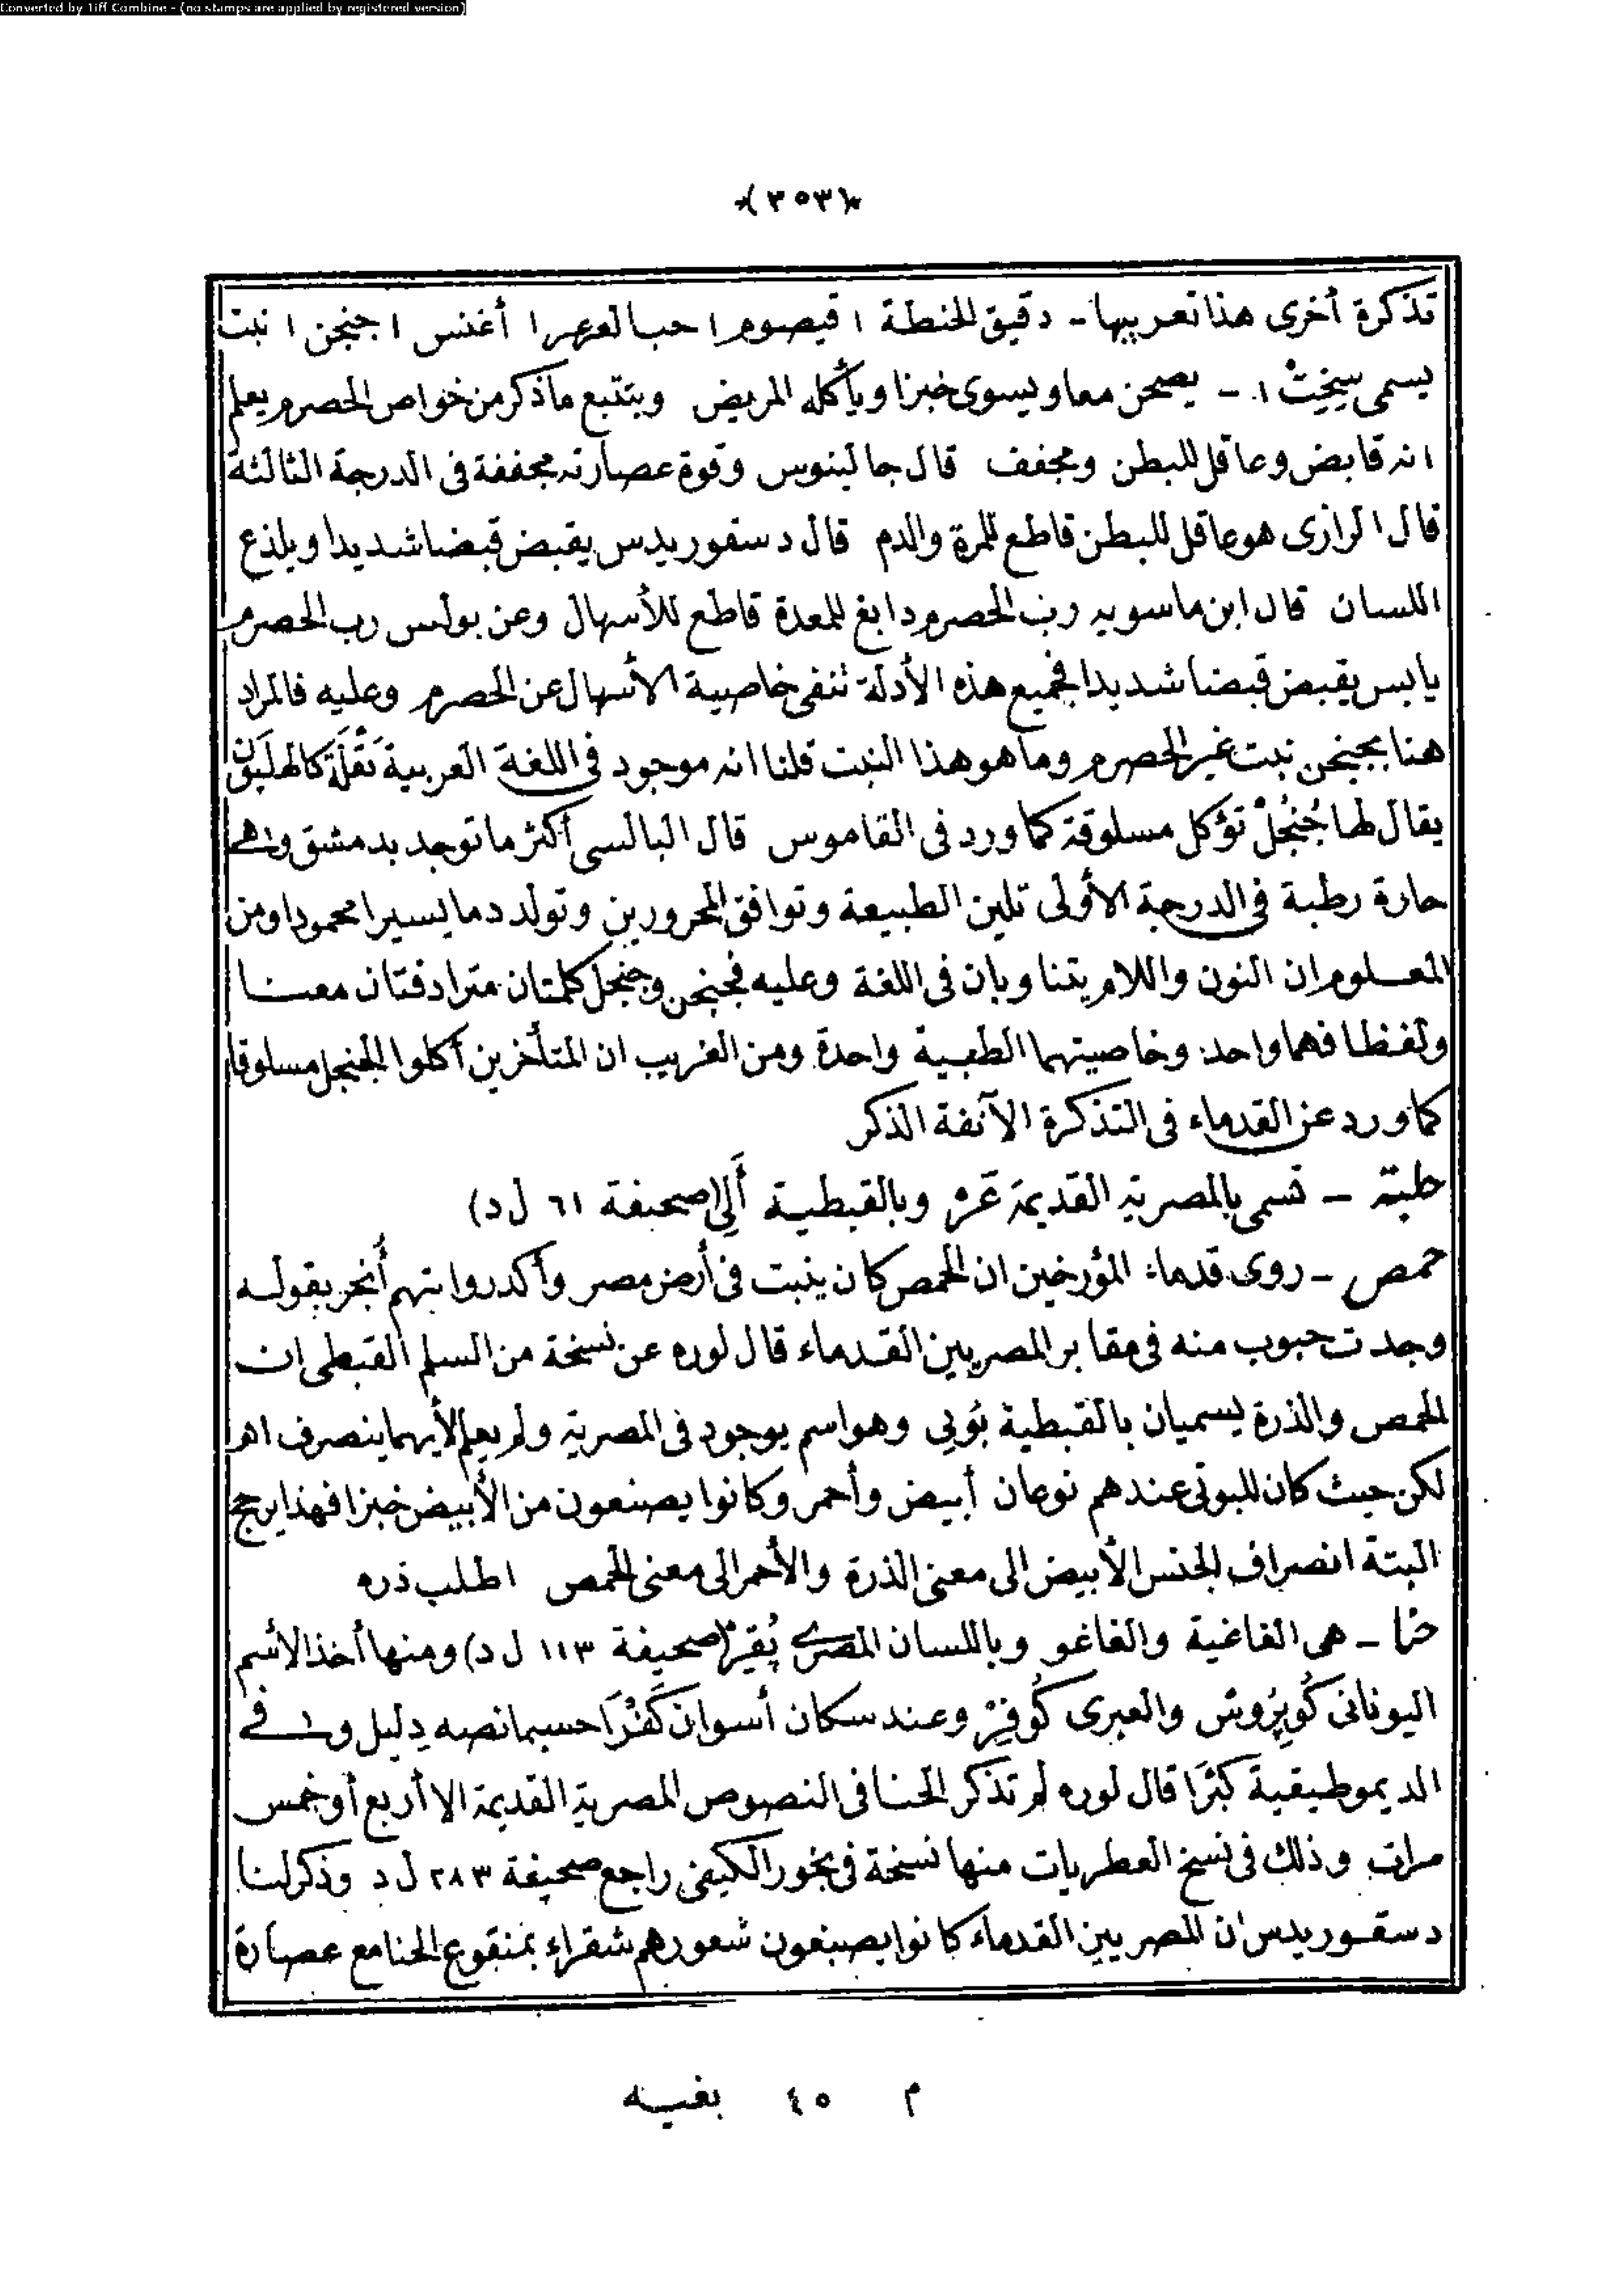 Converted by Tiff Combine - (no stamps are applied by registered version)
(٣٥٣)
تذكرة أخرى هذا تعريبها - دقيق الحنطة ١ قيصوم ١ حب العرعر ١ أغنس ١ جنجن ١ نبت
يسمى سِخِتْ ١ - يصحن معا ويسوى خبزا ويأكله المريض وبتتبع ماذكر من خواص الحصرم يعلم
انه قابض وعاقل للبطن ومجفف قال جالينوس وقوة عصارته مجففة فى الدرجة الثالثة
قال الرازى هو عاقل للبطن قاطع للمرة والدم قال دسقوريدس يقبض قبضا شديدا ويلذع
اللسان قال ابن ماسويه رب الحصرم دابغ للمعدة قاطع للأسهال وعن بولس رب الحصرم
يابس يقبض قبضا شديدا فجميع هذه الأدلة تنفى خاصية الأسهال عن الحصرم وعليه فالمراد
هنا بجنجن نبت غير الحصرم وما هو هذا النبت قلنا انه موجود فى اللغة العربية بَقْلَة كالهليَون
يقال لها جُنْجُلْ تؤكل مسلوقة كما ورد فى القاموس قال البالسى أكثر ما توجد بدمشق وهى
حارة رطبة فى الدرجة الأولى تلين الطبيعة وتوافق المحرورين وتولد دما يسيرا محمودا ومن
المعلوم ان النون واللام يتناوبان فى اللغة وعليه فجنجن وجنجل كلمتان مترادفتان معنا
ولفظا فهما واحد وخاصيتهما الطبية واحدة ومن الغريب ان المتأخرين أكلوا الجنجل مسلوقا
كما ورد عن القدماء فى التذكرة الآنفة الذكر
حلبة - تسمى بالمصرية القديمة وبالقبطية صحيفة ٦١ ل د)
حمص - روى قدماء المؤرخين ان الحمص كان ينبت فى أرض مصر وأكد روايتهم أُنجر بقوله
وجدت حبوب منه فى مقابر المصريين القدماء قال لوره عن نسخة من السلم القبطى ان
الحمص والذرة يسميان بالقبطية بُوتِى وهو اسم يوجود فى المصرية ولم يعلم لأيهما ينصرف اهـ
لكن حيث كان للبوتى عندهم نوعان أبيض وأحمر وكانوا يصنعون من الأبيض خبزا فهذا يرجح
البتة انصراف الجنس الأبيض الى معنى الذرة والأحمر الى معنى الحمص اطلب ذره
حنا - هى الفاغية والفاغو وباللسان المصرى پُقِرْ (صحيفة ١١٣ ل د) ومنها أخذ الاسم
اليونانى كُوپُروُس والعبرى كُوفِرْ وعند سكان أسوان كَفْرَا حسبما نصه دِليل وفى
الديموطيقية كبْرَا قال لوره لم تذكر الحنا فى النصوص المصرية القديمة الا أربع أو خمس
مرات وذلك فى نسخ العطريات منها نسخة فى بخور الكيفى راجع صحيفة ٢٨٣ ل د وذكر لنا
دسقوريدس ان المصريين القدماء كانوا يصبغون شعورهم شقراء بمنقوع الحنا مع عصارة
م ٤٥ بغيه